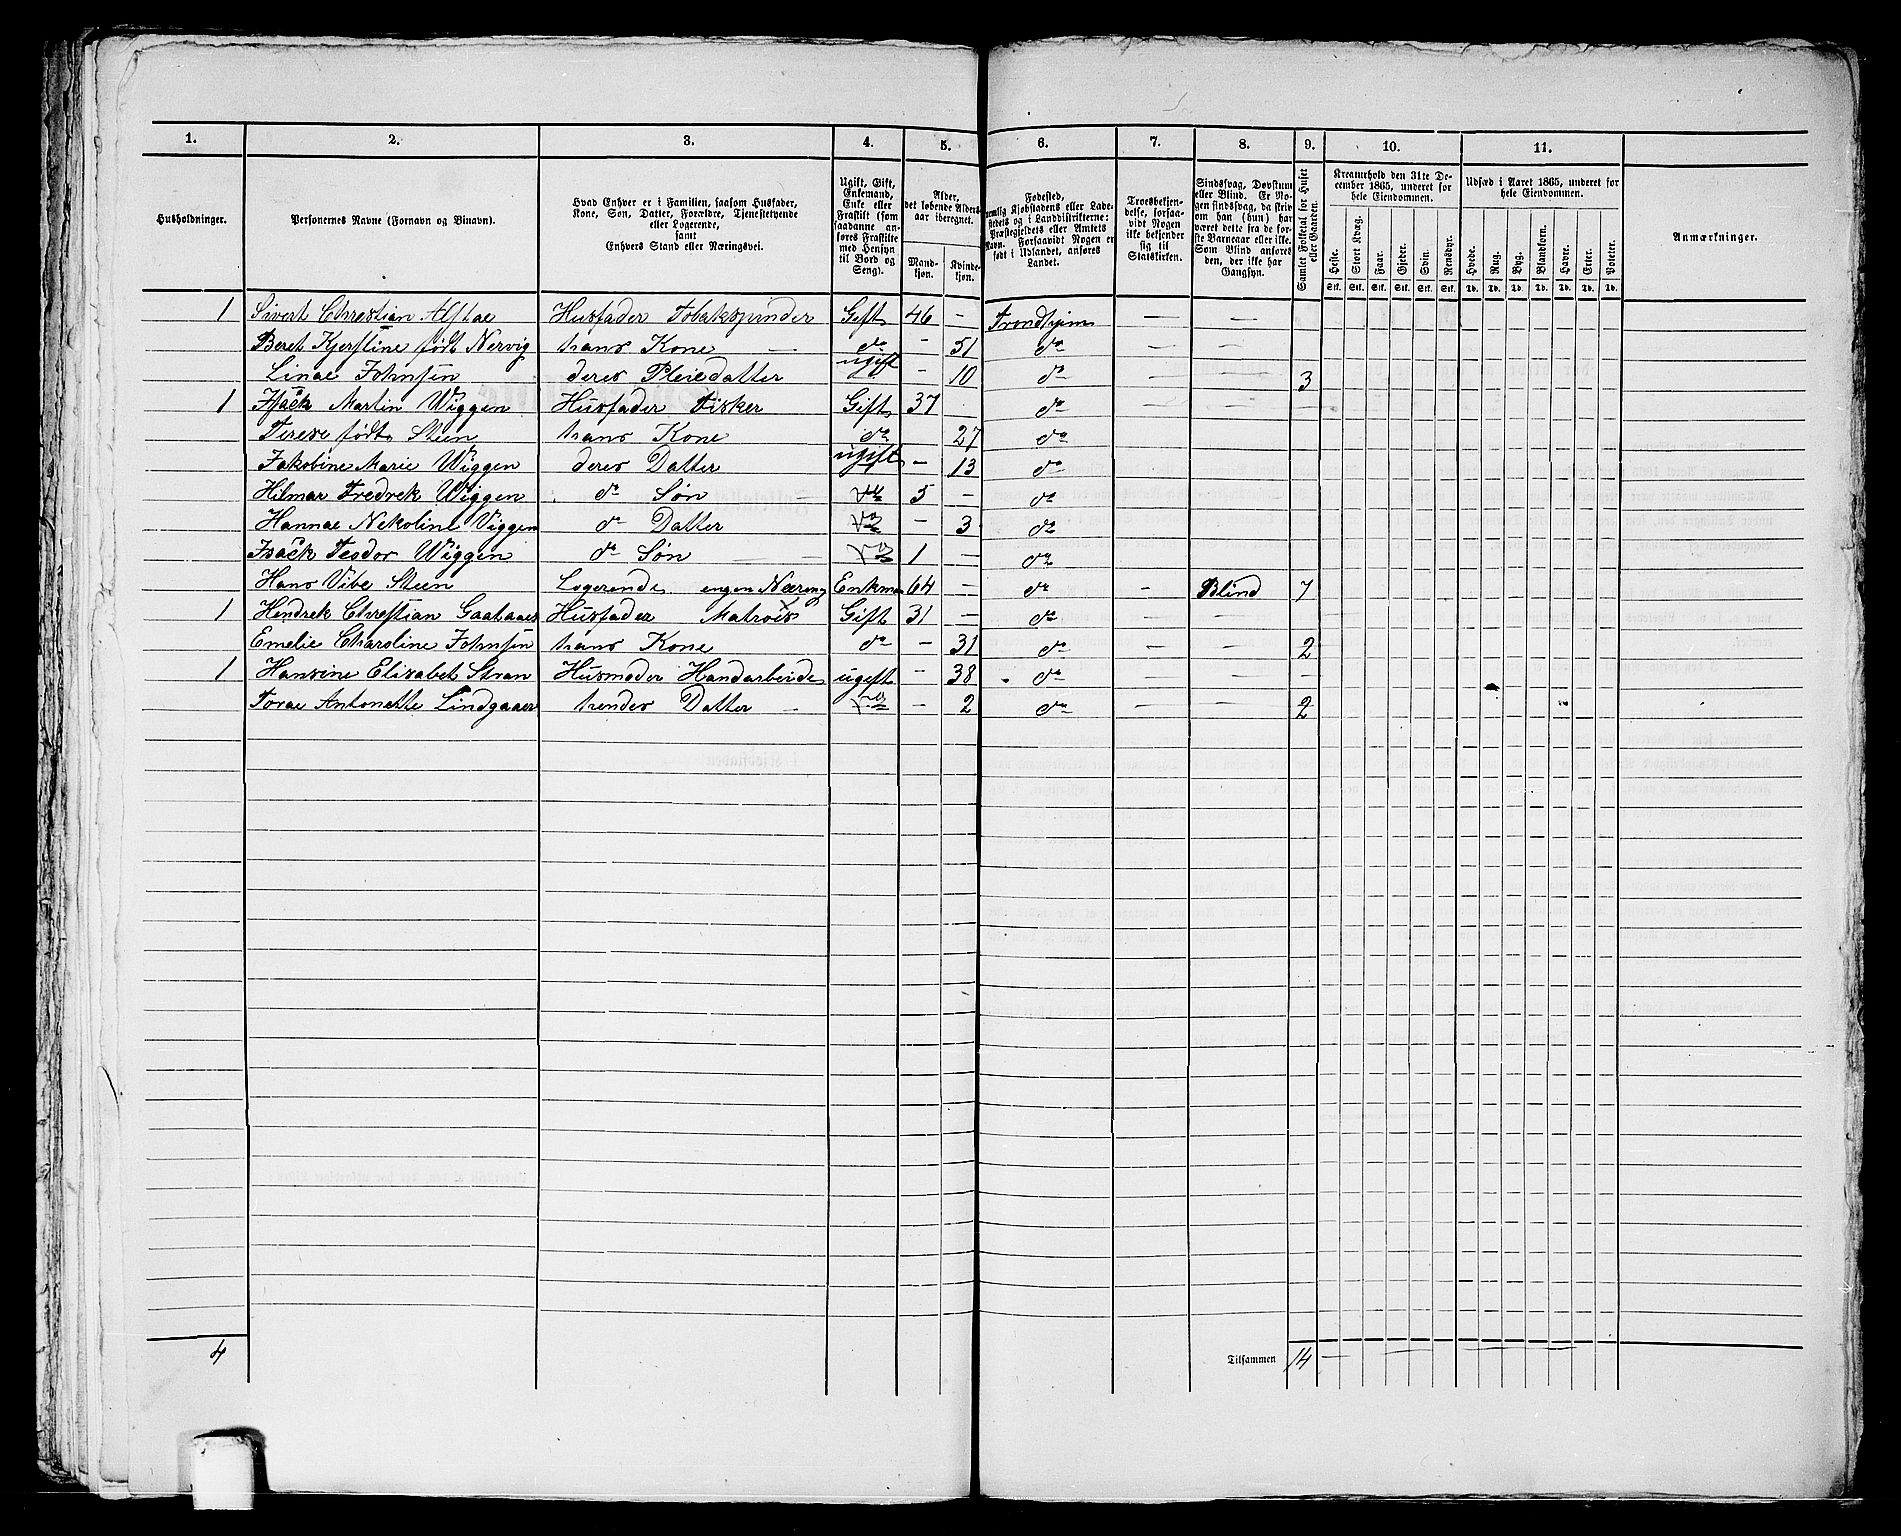 1. 2. 3. 4. 5. 6. 7. 8. 9. 10. 11.
Husholdninger.
Personernes Navne (Fornavn og Binavn).
Hvad Enhver er i Familien, saasom Husfader,
Kone, Søn, Datter, Forældre, Tjenestetyende
eller Logerende,
samt
Enhvers Stand eller Næringsvei.
Ugift, Gift,
Enkemand,
Enke eller
Fraskilt (som
saadanne an-
føres Fraskilte
med Hensyn
til Bord og
Seng).
Alder,
det løbende Alders-
aar iberegnet.
Mand-
kjøn.
Kvinde-
kjøn.
Fødested,
nemlig Kjøbstadens eller Lade-
stedets og i Landdistrikterne:
Præstegjeldets eller Amtets
Navn. Forsaavidt Nogen er
født i Udlandet, anføres
Landet.
Troesbekjen-
delse, forsaa-
vidt Nogen
ikke bekjender
sig til
Statskirken.
Sindssvag, Døvstum
eller Blind. Er No-
gen sindssvag, da skriv
om han (hun) har
været dette fra de før-
ste Barneaar eller ikke.
Som Blind anføres
den, der ikke har
Gangsyn.
Samlet Folketal for Huset
eller Gaarden.
Kreaturhold den 31te De-
cember 1865, underet for
hele Eiendommen.
Heste. Stort Kvæg. Faar. Gjeder. Svin. Rensdyr.
Stk. Stk. Stk. Stk. Stk. Stk.
Udsæd i Aaret 1865, underet for
hele Eiendommen.
Hvede. Rug. Byg. Blandkorn. Havre. Erter. Poteter.
Td. Td. Td. Td. Td. Td. Td.
Anmærkninger.
1 Sivert Christian Alstae Husfader Tobakspinder Gift 46 — Trondhjem — —
Beret Kjerstine født Nervig hans Kone do - 51 do — —
Linae Johnsen deres Pleiedatter ugift - 10 do — — 3
1 Isack Martin Wiggen Husfader Fisker Gift 37 — do — —
Terese født Steen hans Kone do 27 do
Jakobine Marie Wiggen deres Datter ugift - 13 do
Hilmar Fredrek Wiggen do Søn do 5 — do
Hannae Nekoline Viggen do Datter do - 3 do
Isack Teodor Wiggen do Søn do 1 — do
Hans Vibe Steen Logerende engen Nærring Enkma 64 — do - Blind 7
1 Hendrek Chrestian Gaataaes Husfader Matrois Gift 31 — do — -
Emelie Charoline Johnsen hans Kone do - 31 do — — 2
1 Hansine Elisabet Stran Husmoder Handarbeide ugeft - 38 do — —
Torae Antonette Lindgaaer hendes Datter do - 2 do — — 2
4 Tilsammen 14